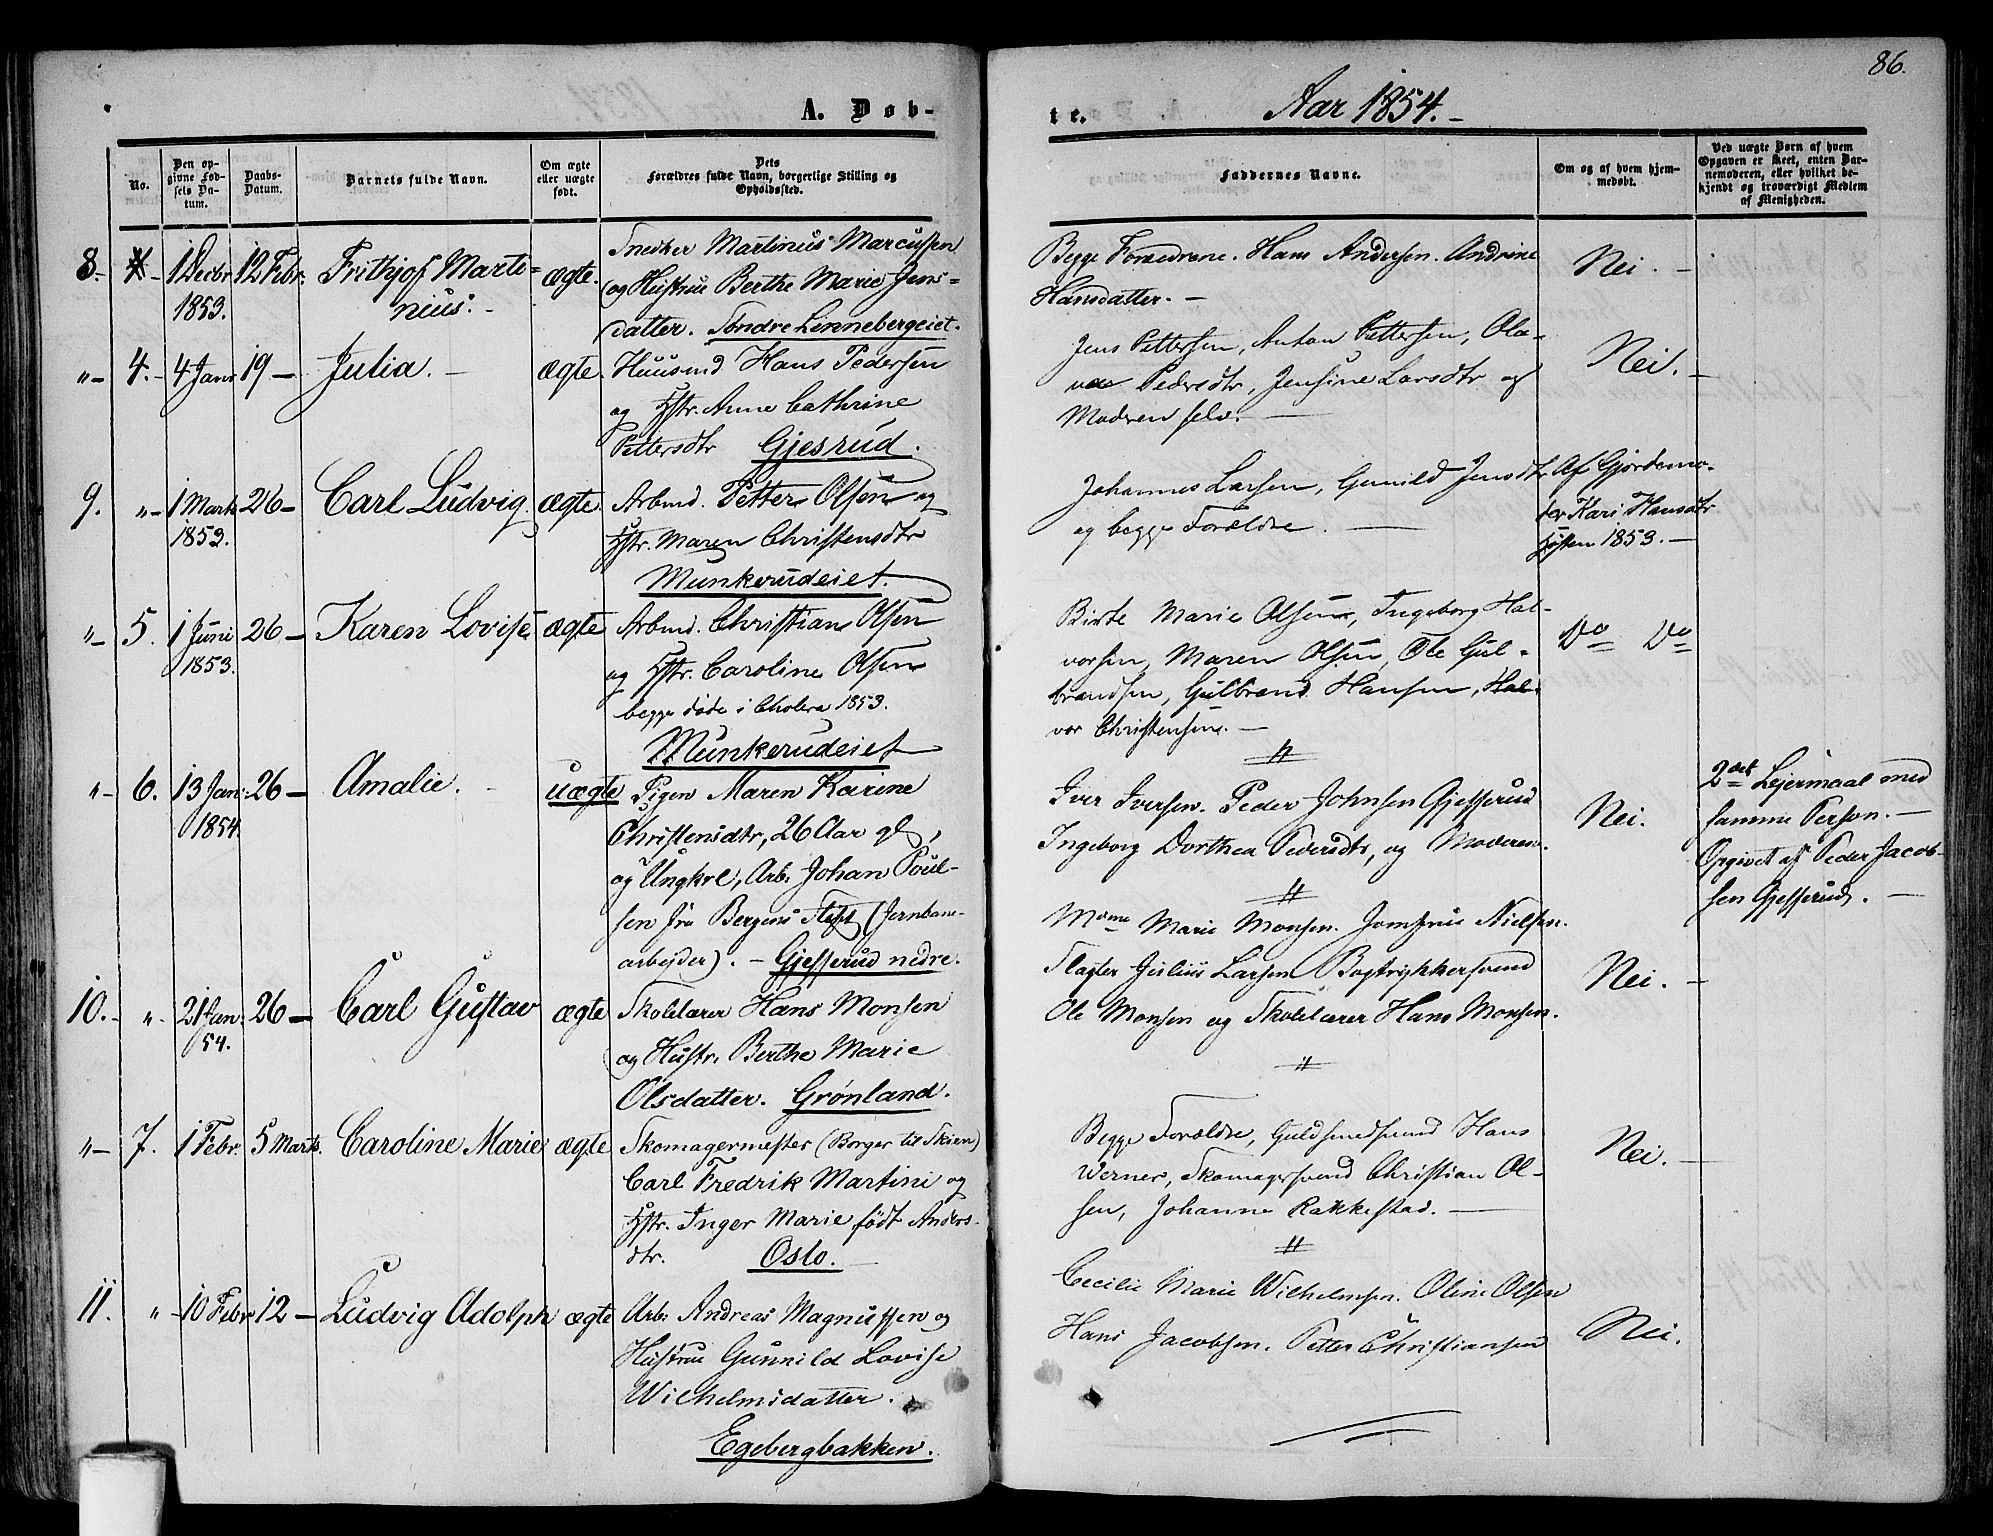 86.
A. Døb-
te. Aar 1854.
No.
Den op-
givne Fød-
sels Da-
tum.
Daabs-
Datum.
Barnets fulde Navn.
Om ægte
eller uægte
født.
Dets
Forældres fulde Navn, borgerlige Stilling og
Opholdssted.
Faddernes Navne.
Om og af hvem hjem-
medøbt.
Ved uægte Børn af hvem
Opgaven er skeet, enten Bar-
nemoderen, eller hvilket be-
kjendt og troværdigt Medlem
af Menigheden.
8. 1 Decbr 12 Febr. Frithjof Marti-
1853. nius.
ægte.
Snedker Martinius Marcussen
og Hustrue Berthe Marie Jens-
datter. Søndre Linnebergeiet.
Begge Forældrene. Hans Andersen. Andrine
Hansdatter.
Nei.
"- 4. 4 Janr 19 - Julia. ægte.
Huusmd Hans Pedersen
og Hstr. Anne Cathrine
Pettersdtr Gjesrud.
Jens Pettersen, Anton Pettersen, Ola-
va Pedersdtr, Jensine Larsdtr og
Moderen selv.
Nei.
9. "- 1 Marts 26 - Carl Ludvig ægte.
1853.
Arbmd. Petter Olsen og
Hstr. Maren Christensdtr
Munkerudeiet.
Johannes Larsen, Gunild Jensdtr
og begge Forældre.
Af Gjordemo-
der Kari Hansdtr
Høsten 1853.
"- 5. 1 Juni 26 - Karen Lovise ægte
1853.
Arbmd. Christian Olsen
og Hstr. Caroline Olsen
begge døde i Cholera 1853.
Munkerudeiet
Birte Marie Olsen, Ingeborg Hal-
vorsen, Maren Olsen, Ole Gul-
brandsen, Gulbrand Hansen, Hal-
vor Christensen.
Do Do
"- 6. 13 Jan. 26 - Amalie. uægte
1854.
Pigen Maren Karine
Christensdtr, 26 Aar gl,
og Ungkrl, Arb: Johan Poul-
sen fra Bergens Stift (Jernbane-
arbejder). - Gjesserud nedre.
Iver Iversen. Peder Johnsen Gjesserud
Ingeborg Dorthea Pedersdtr, og Moderen.
Nei.
2det Lejermaal med
samme Person.
Opgivet af Peder Jacob-
sen Gjesserud.
10. " 21 Jan. 26 - Carl Gustav ægte
54.
Skolelærer Hans Monsen
og Hustr. Berthe Marie
Olsdatter. Grønland.
Mdme Marie Monsen. Jomfrue Nielsen.
Slagter Julius Larsen Bogtrykkersvend
Ole Monsen og Skolelærer Hans Monsen.
Nei.
"- 7. 1 Febr. 5 Marts. Caroline Marie ægte
Skomagermester (Borger til Skien)
Carl Fredrik Martini og
Hstr. Inger Marie født Anders-
dtr. Oslo.
Begge Forældre, Guldsmedsvend Hans
Werner, Skomagersvend Christian Ol-
sen, Johanne Rakkestad.
Nei.
11. " 10 Febr 12 - Ludvig Adolph ægte
Arb: Andreas Magnussen og
Hustrue Gunnild Lovise
Wilhelmsdatter.
Egebergbakken.
Cecilie Marie Wilhelmsen. Oline Olsen
Hans Jacobsen. Petter Christiansen
Nei.